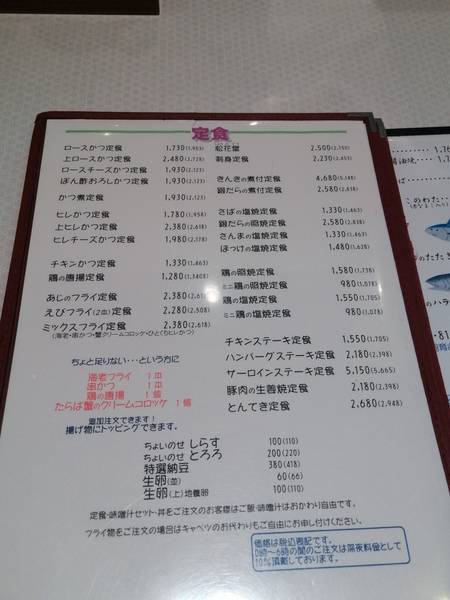 定食
ロースかつ定食 1,730(1,903)
上ロースかつ定食 2,480(2,728)
ロースチーズかつ定食 1,930(2,123)
ぽん酢おろしかつ定食 1,930(2,123)
かつ煮定食 1,930(2,123)
ヒレかつ定食 1,780(1,958)
上ヒレかつ定食 2,380(2,618)
ヒレチーズかつ定食 1,980(2,178)
チキンかつ定食 1,330(1,463)
鶏の唐揚定食 1,280(1,408)
あじのフライ定食 2,380(2,618)
えびフライ(2本)定食 2,280(2,508)
ミックスフライ定食 2,380(2,618)
(海老・串かつ・蟹クリームコロッケ・ひとくちヒレかつ)
ちょと足りない...という方に
海老フライ 1本
串かつ 1本
鶏の唐揚 1個
たらば蟹のクリームコロッケ 1個
追加注文できます!
松花堂 2,500(2,750)
刺身定食 2,230(2,453)
きんきの煮付定食 4,680(5,148)
銀だらの煮付定食 2,580(2,838)
さばの塩焼定食 1,330(1,463)
銀だらの塩焼定食 2,580(2,838)
さんまの塩焼定食 1,330(1,463)
ほっけの塩焼定食 1,480(1,628)
鶏の照焼定食 1,580(1,738)
ミニ鶏の照焼定食 980(1,078)
鶏の塩焼定食 1,550(1,705)
ミニ鶏の塩焼定食 980(1,078)
チキンステーキ定食 1,550(1,705)
ハンバーグステーキ定食 2,180(2,398)
サーロインステーキ定食 5,150(5,665)
豚肉の生姜焼定食 2,180(2,398)
とんてき定食 2,680(2,948)
揚げ物にトッピングできます。
ちょいのせ しらす 100(110)
ちょいのせ とろろ 200(220)
特選納豆 380(418)
生卵(並) 60(66)
生卵(上)地養卵 100(110)
定食・味噌汁セット・丼をご注文のお客様はご飯・味噌汁はおかわり自由です。
フライ物をご注文の場合はキャベツのお代わりもご自由にお申し付けください。
価格は税込表記です。
0時~6時の間のご注文は深夜料金として
10%頂戴しております。